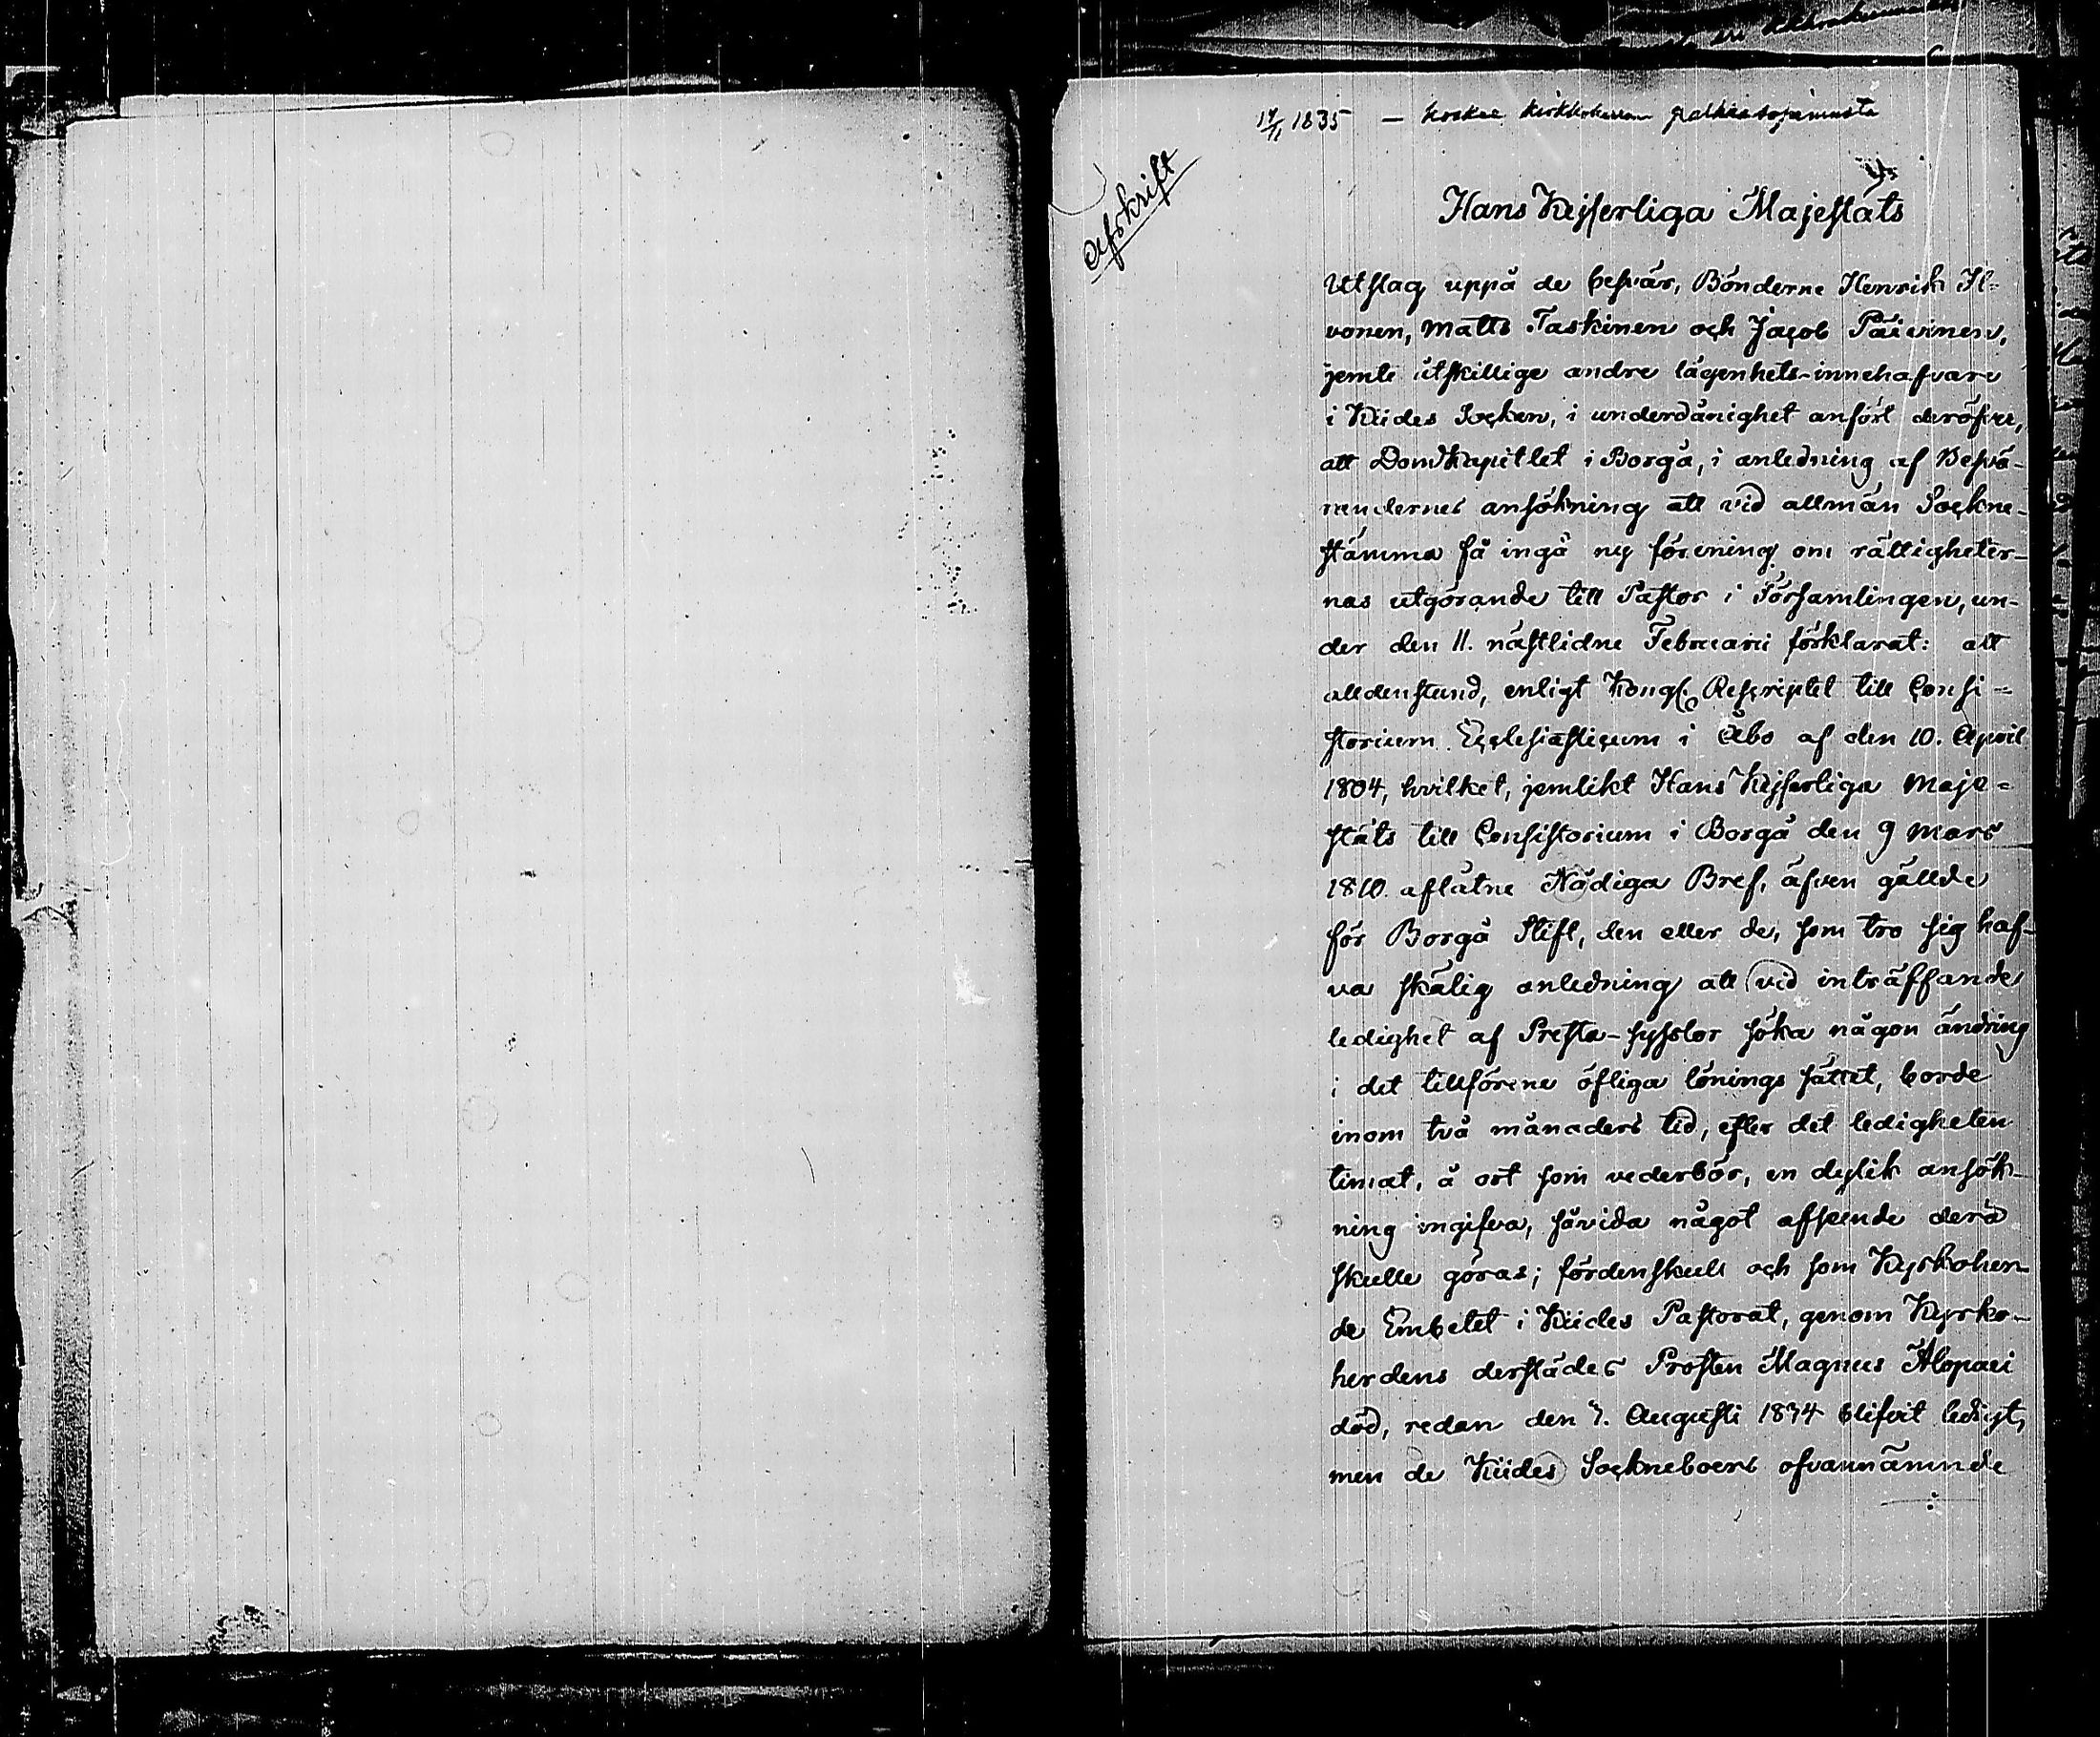 1835 — koskee kirkkoherran palkkasopimusta
Afskrift
Hans Kejserliga Majestäts
Utslag uppå de besvär, Bönderne Henrik Il-
vonen, Matts Taskinen och Jacob Päivinen,
jemte åtskillige andre lägenhets-innehafvare
i Kides Socken, i underdånighet anfört deröfver,
att Domkapitlet i Borgå, i anledning af Besvä-
randernes ansökning att vid allmän Sockne-
stämma få ingå ny förening om rättigheter-
nas utgörande till Pastor i Församlingen, un-
der den 11. nästlidne Februarii förklarat: att
alldenstund, enligt Kongl. Rescriptet till Consi-
storium Ecclesiasticum i Åbo af den 10. April
1804, hvilket, jemlikt Hans Kejserliga Maje=
stäts till Consistorium i Borgå den 9 Mars
1810. aflåtne Nådiga Bref, äfven gällde
för Borgå Stift, den eller de, som tro sig haf-
va skälig anledning att vid inträffande
ledighet af Presta-sysslor söka någon ändring
i det tillförene öfliga lönings sättet, borde
inom två månaders tid, efter det ledigheten
timat, å ort som vederbör, en dylik ansök-
ning ingifva, såvida något afseende derå
skulle göras; fördenskull och som Kyrkoher-
de Embetet i Kides Pastorat, genom Kyrko-
herdens derstädes Prosten Magnus Alopaei
död, redan den 7. Augusti 1834 blifvit ledigt,
men de Kides Sockneboers ofvannämnde